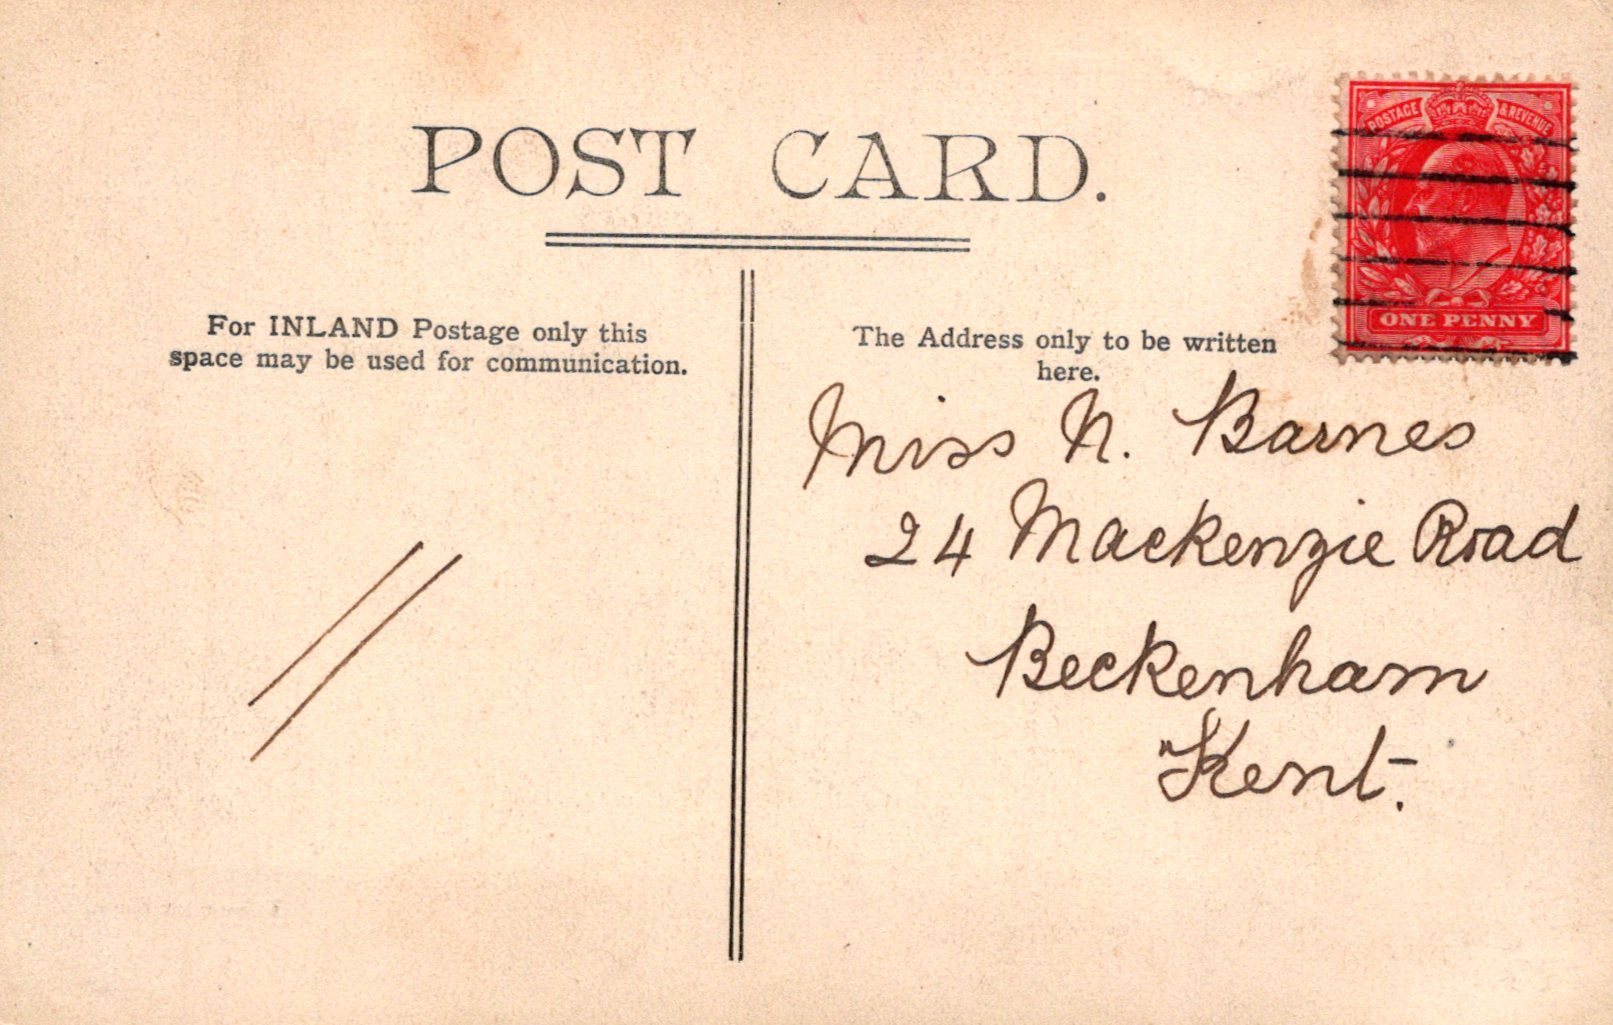 POST CARD.
For INLAND Postage only this
space may be used for communication.
The Address only to be written
here.
POSTAGE & REVENUE
ONE PENNY
Miss N. Barnes
24 Mackenzie Road
Beckenham
Kent.